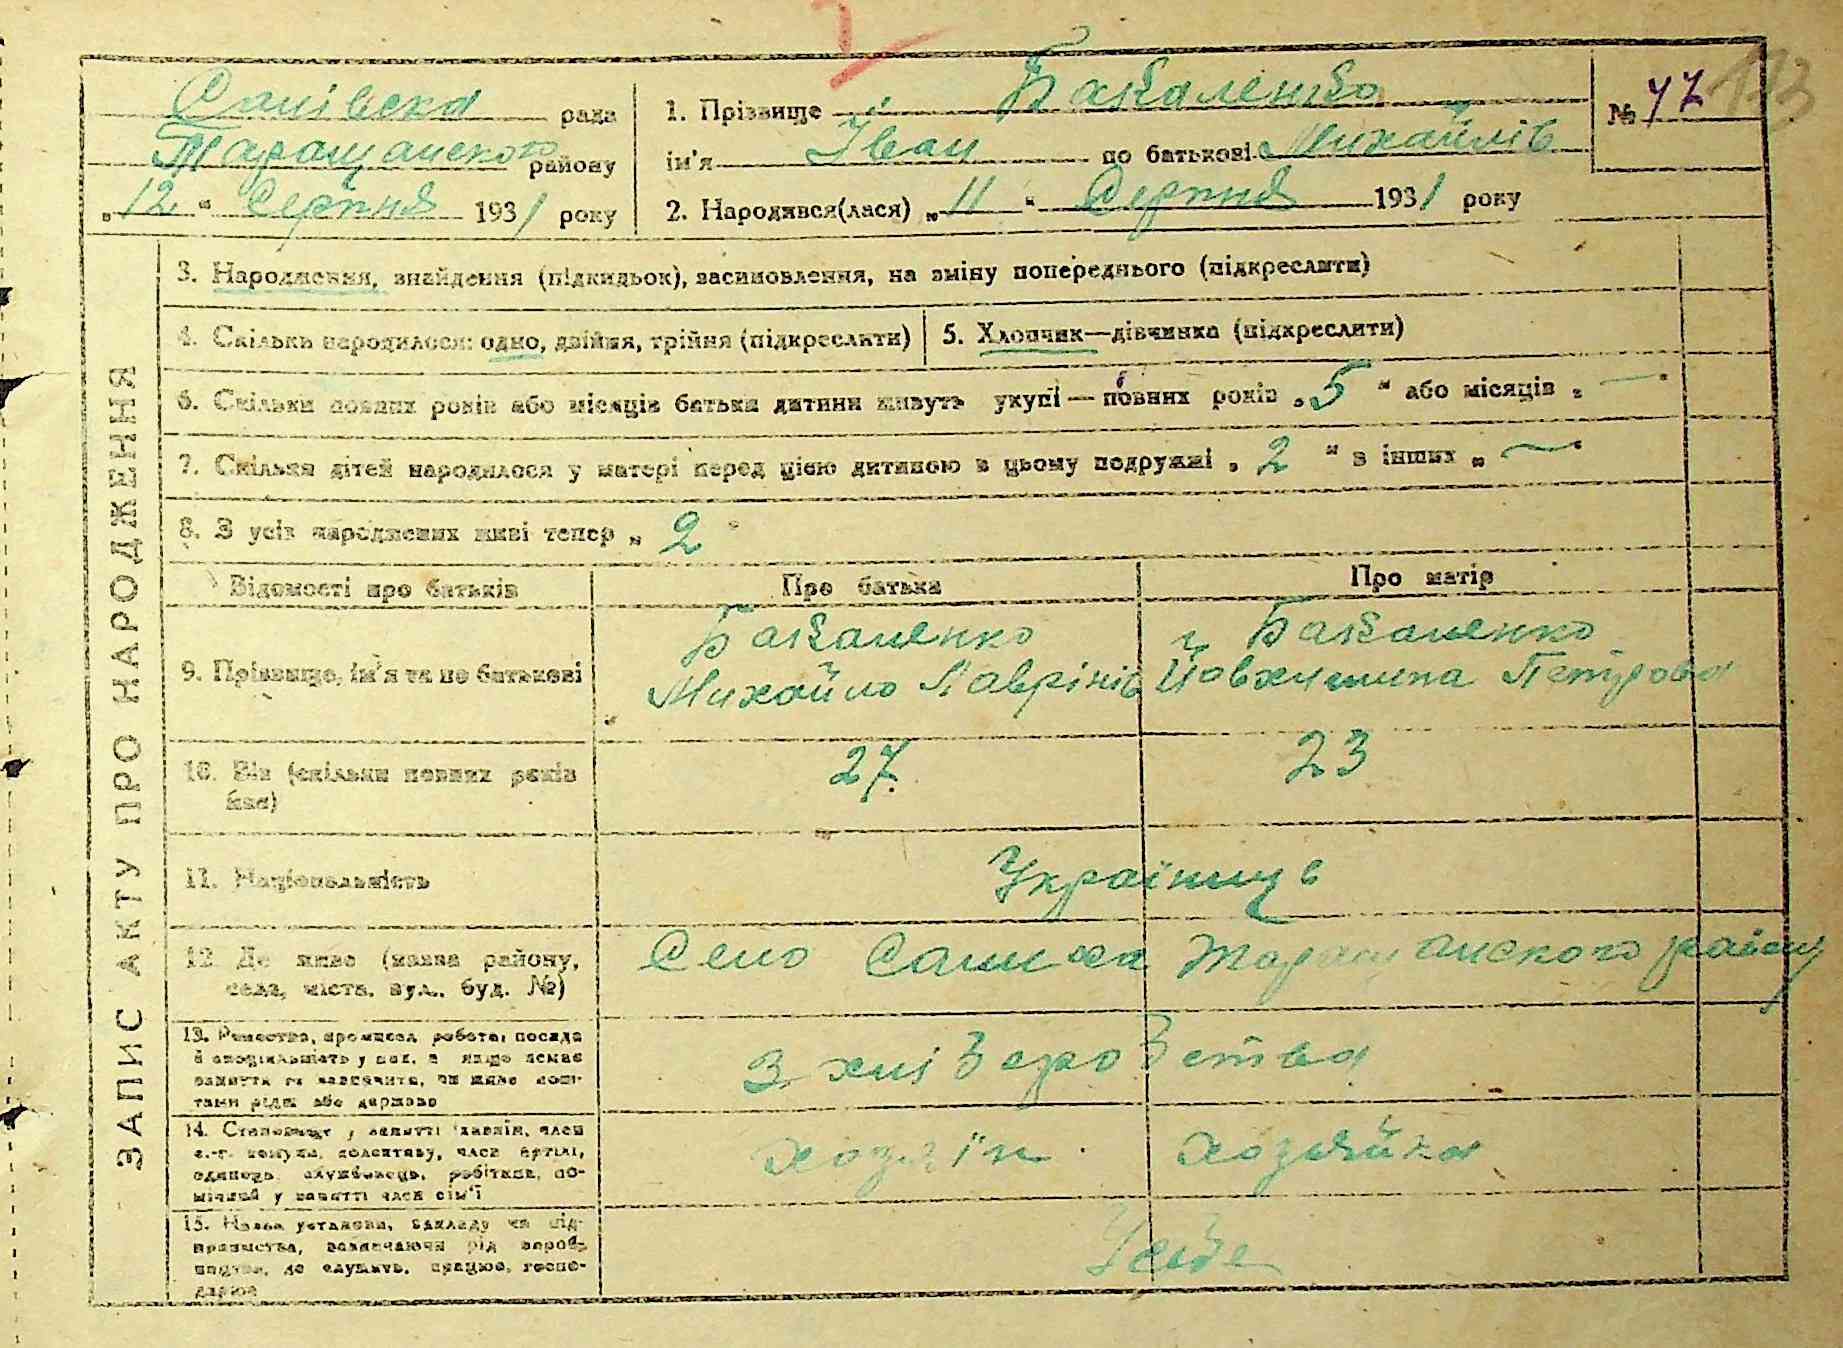 Саливска рада
Таращанского району
„12" Серпня 1931 року
1. Прізвище Бакаленко
ім'я Іван по батькові Михайлів
2. Народився(лася) „11" Серпня 1931 року
№ 77
113
ЗАПИС АКТУ ПРО НАРОДЖЕННЯ
3. Народження, знайдення (підкидьок), засиновлення, на зміну попереднього (підкреслити)
4. Скільки народилося: одно, двійня, трійня (підкреслити)
5. Хлопчик—дівчинка (підкреслити)
6. Скільки повних років або місяців батьки дитини живуть укупі — повних років „5" або місяців „—"
7. Скільки дітей народилося у матері перед цією дитиною в цьому подружжі „2" в інших „—"
8. З усіх народжених живі тепер „2"
Відомості про батьків
Про батька
Про матір
9. Прізвище, ім'я та по батькові
Бакаленко
Михайло Лаврінів
Бакаленко
Йовхимина Петрова
10. Вік (скільки повних років має)
27
23
11. Національність
Українці
12. Де живе (назва району, села, міста, вул., буд. №)
Село Салиха Таращанского району
13. Ремество, промисел, робота, посада
й спеціяльність у
тами рідні або держави
З хліборобства
14. Становище у занятті
с.-г. комуни, колективу, член артілі,
одинець, службовець, робітник, по-
мічний у занятті член сім'ї
хозяїн
хозяйка
15. Назва установи, закладу чи під-
приємства, зазначаючи рід вироб-
ництва, де служить, працює, госпо-
дарює
У себе